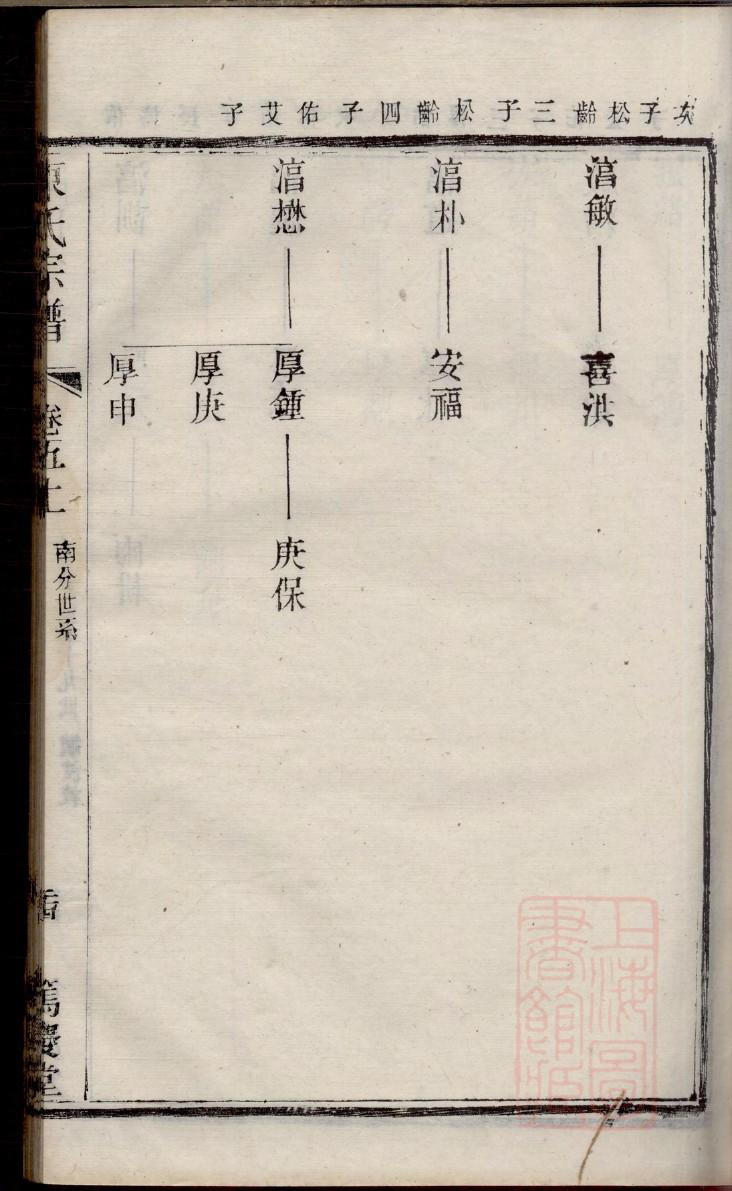 友子松齡三子松齡四子佑艾子
湻敏
喜洪
湻朴
安福
湻懋
厚鍾
庚保
厚庚
厚申
氏宗譜
卷五十
南分世系
篤慶堂
上海圖書館藏